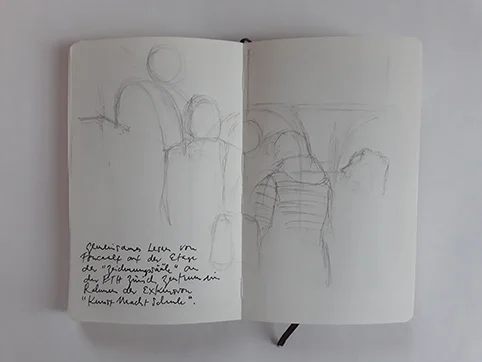 gemeinsames Lesen von
Foucault auf der Etage
der "Zeichnungssäle" an
der ETH Zürich Zentrum im
Rahmen der Exkursion
"Kunst Macht Schule".